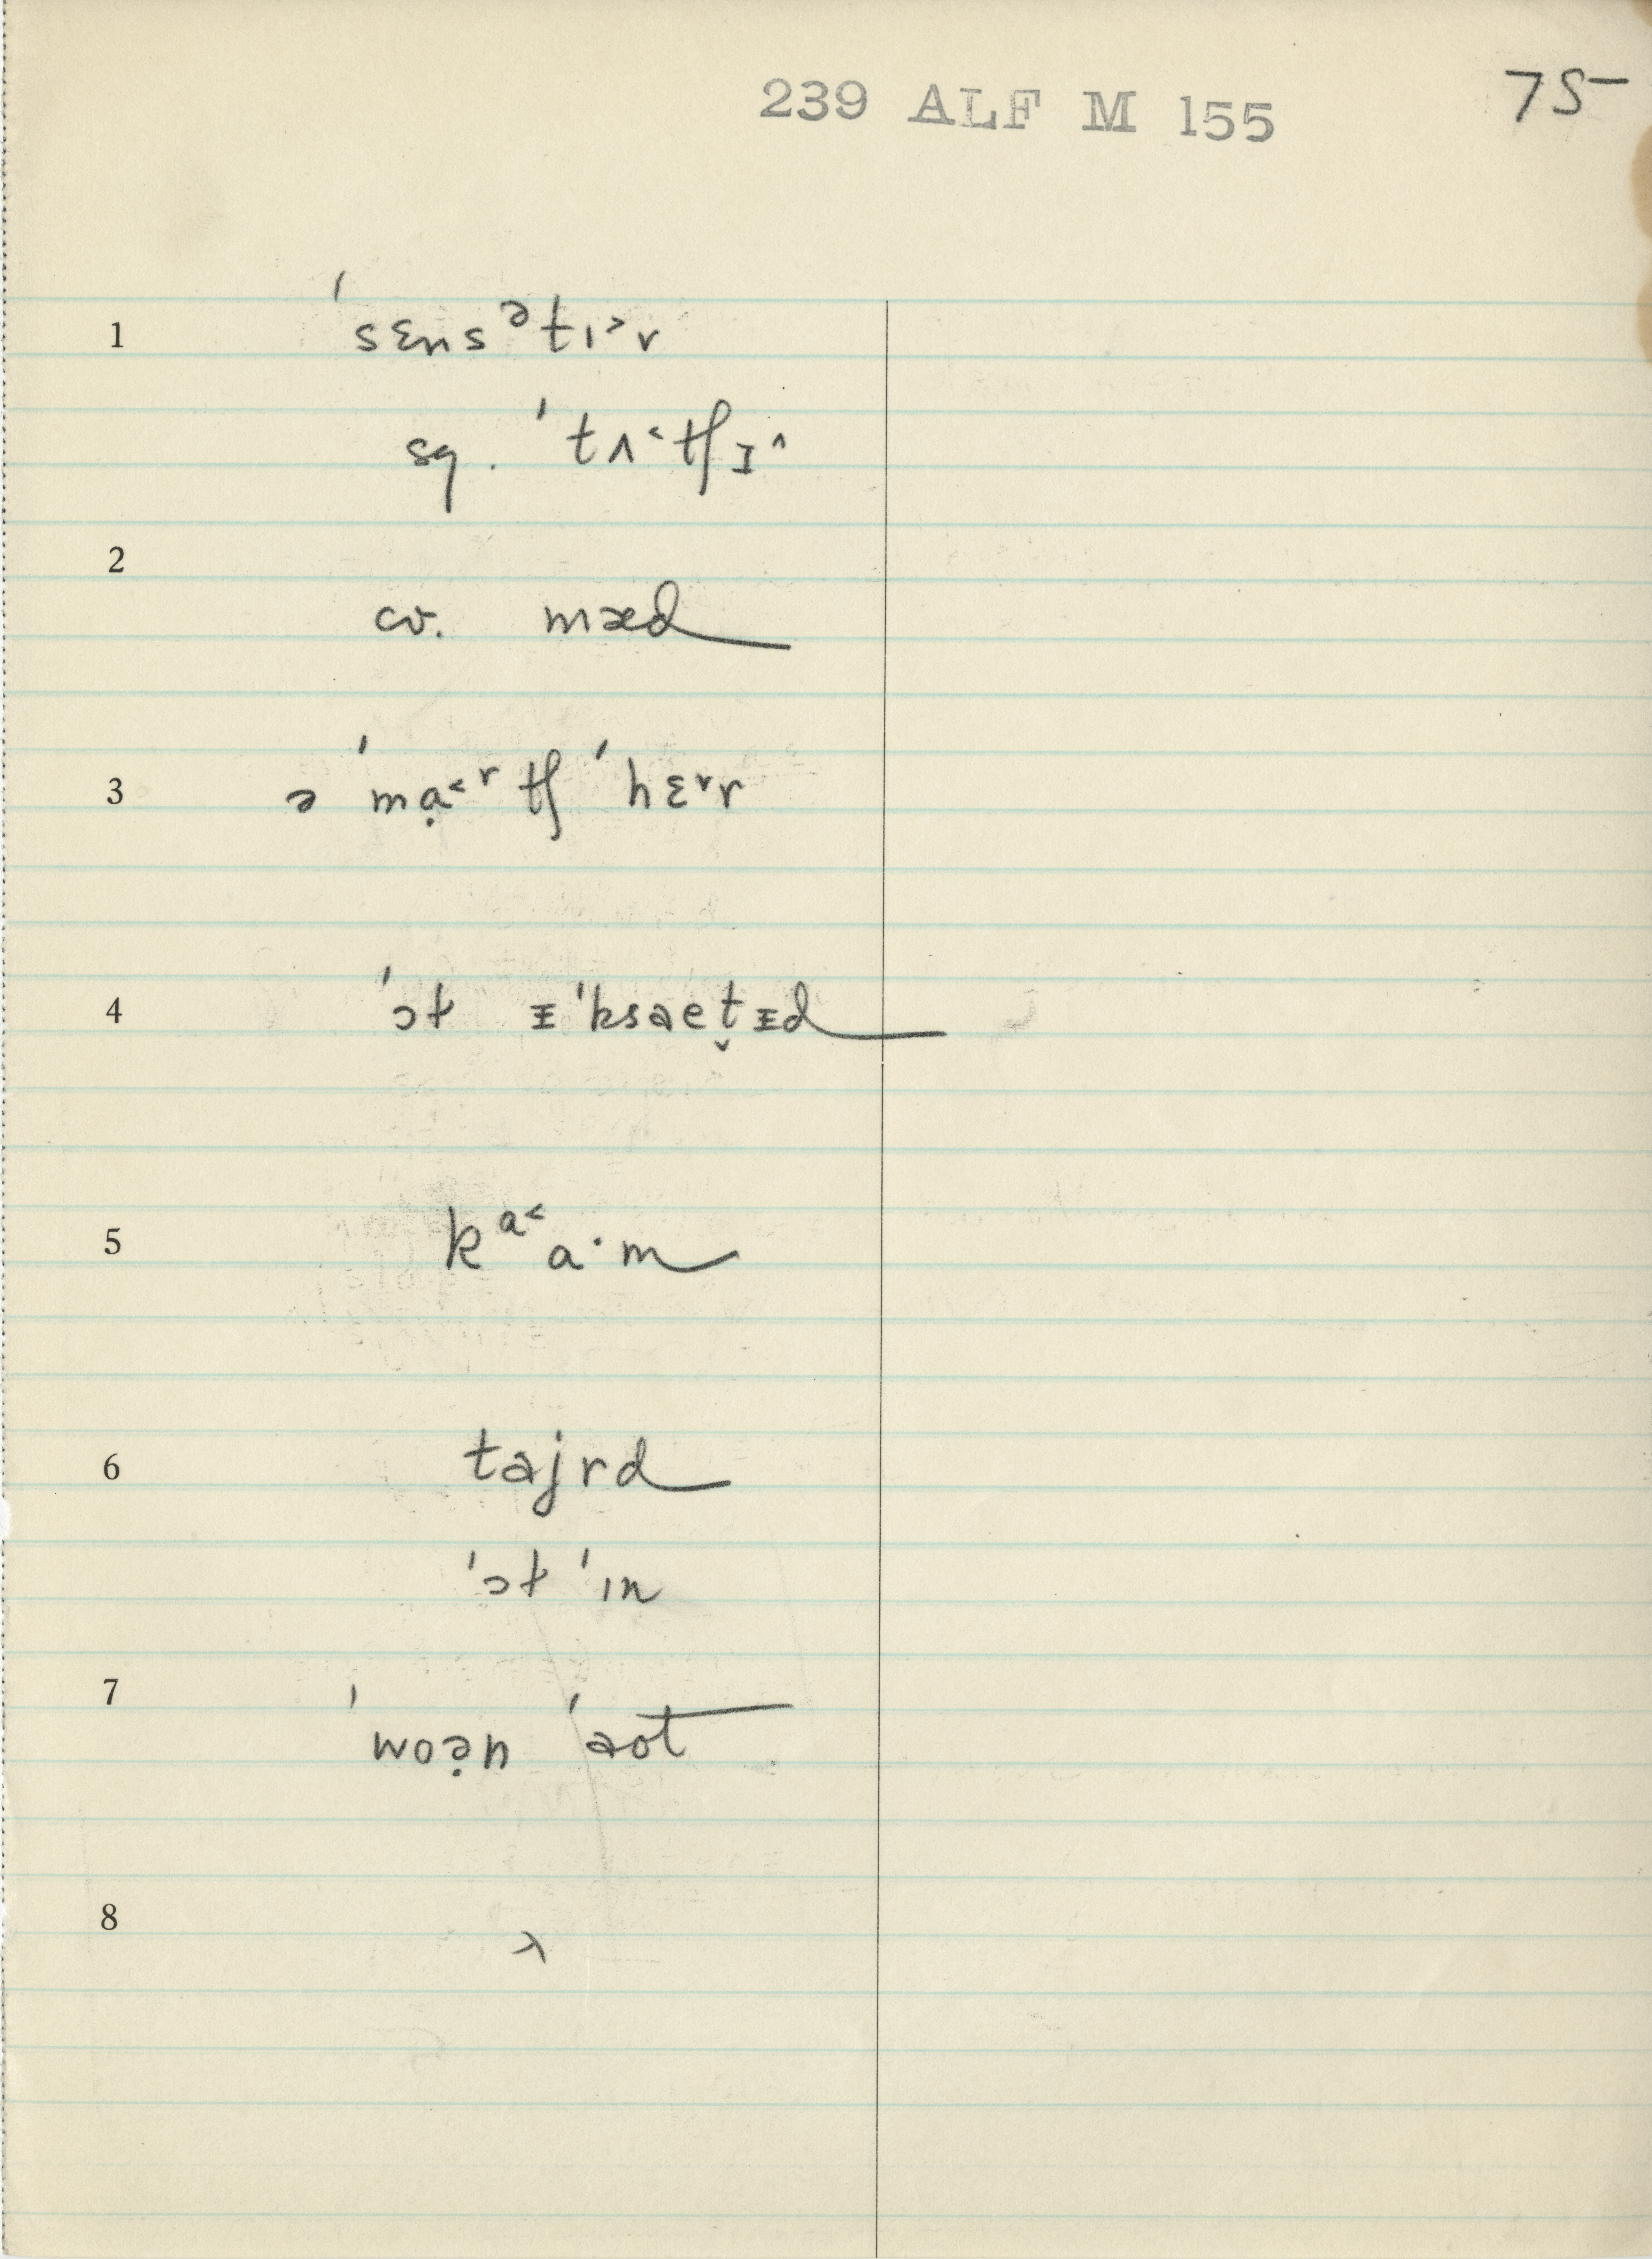 239 ALF M 155 75
1 ˈsɛnsᵊtɪ˃r
sq. ˈtʌ˂tʃɪ˄
2
cv. mæd
3 ə ˈmạ˂ʳ tʃ ˈhɛ˅r
4 ˈɔt ᵻˈksaet̬ᵻd
5 kᵃ˂a·m
6 tajrd
ˈɔt ˈɪn
7 ˈwoə̣n ˈaot
8 ⋋